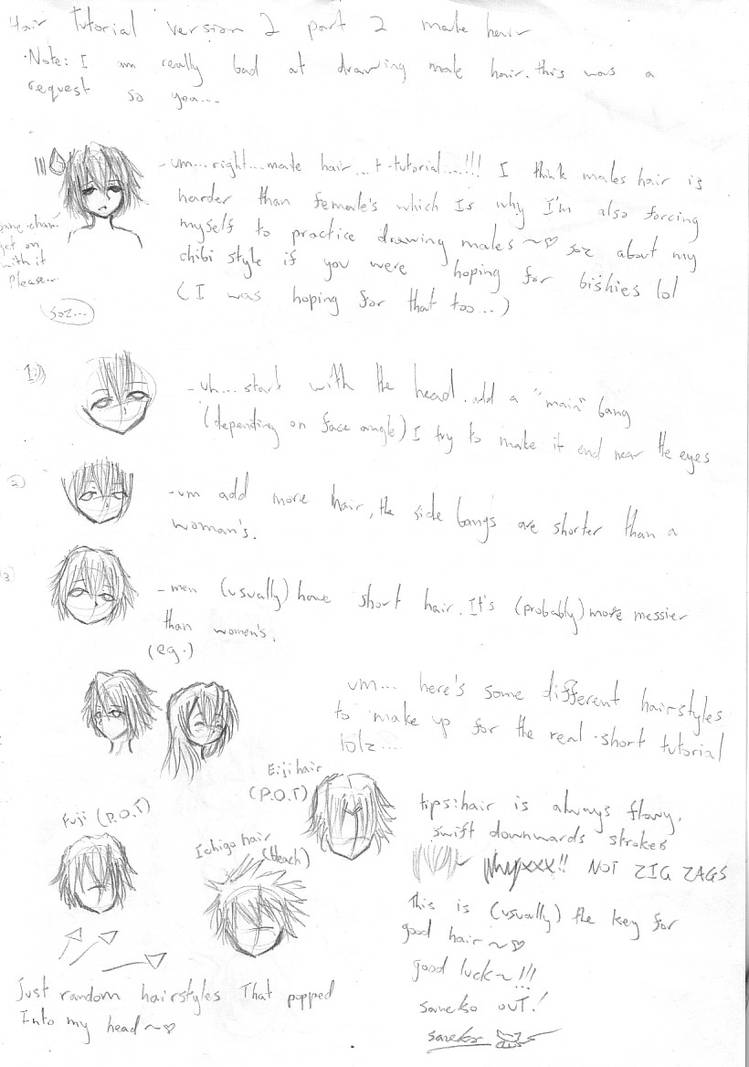 Hair tutorial version 2 part 2 male hair
·Note: I am really bad at drawing male hair. this was a
request so yea...
-um...right...male hair...t-tutorial....!!! I think males hair is
harder than female's which Is why I'm also forcing
myself to practice drawing males~♡ soz about my
chibi style if you were hoping for bishies lol
(I was hoping for that too..)
-chan
get on
with it
Please..
soz...
1)
-uh.... start with the head. add a "main" bang
(depending on face angle) I try to make it end near the eyes
2)
-um add more hair, the side bangs are shorter than a
woman's.
3)
-men (usually) have short hair. It's (probably) more messier
than women's.
(eg.)
um... here's some different hairstyles
to make up for the real short tutorial
lolz...
Eiji hair
(P.O.T)
Fuji (P.O.T)
Ichigo hair
(bleach)
tips: hair is always flowy.
swift downwards strokes
NOT ZIG ZAGS
This is (usually) the key for
good hair~♡
good luck~!!!
saneko OUT!
saneko
Just random hairstyles That popped
Into my head~♡